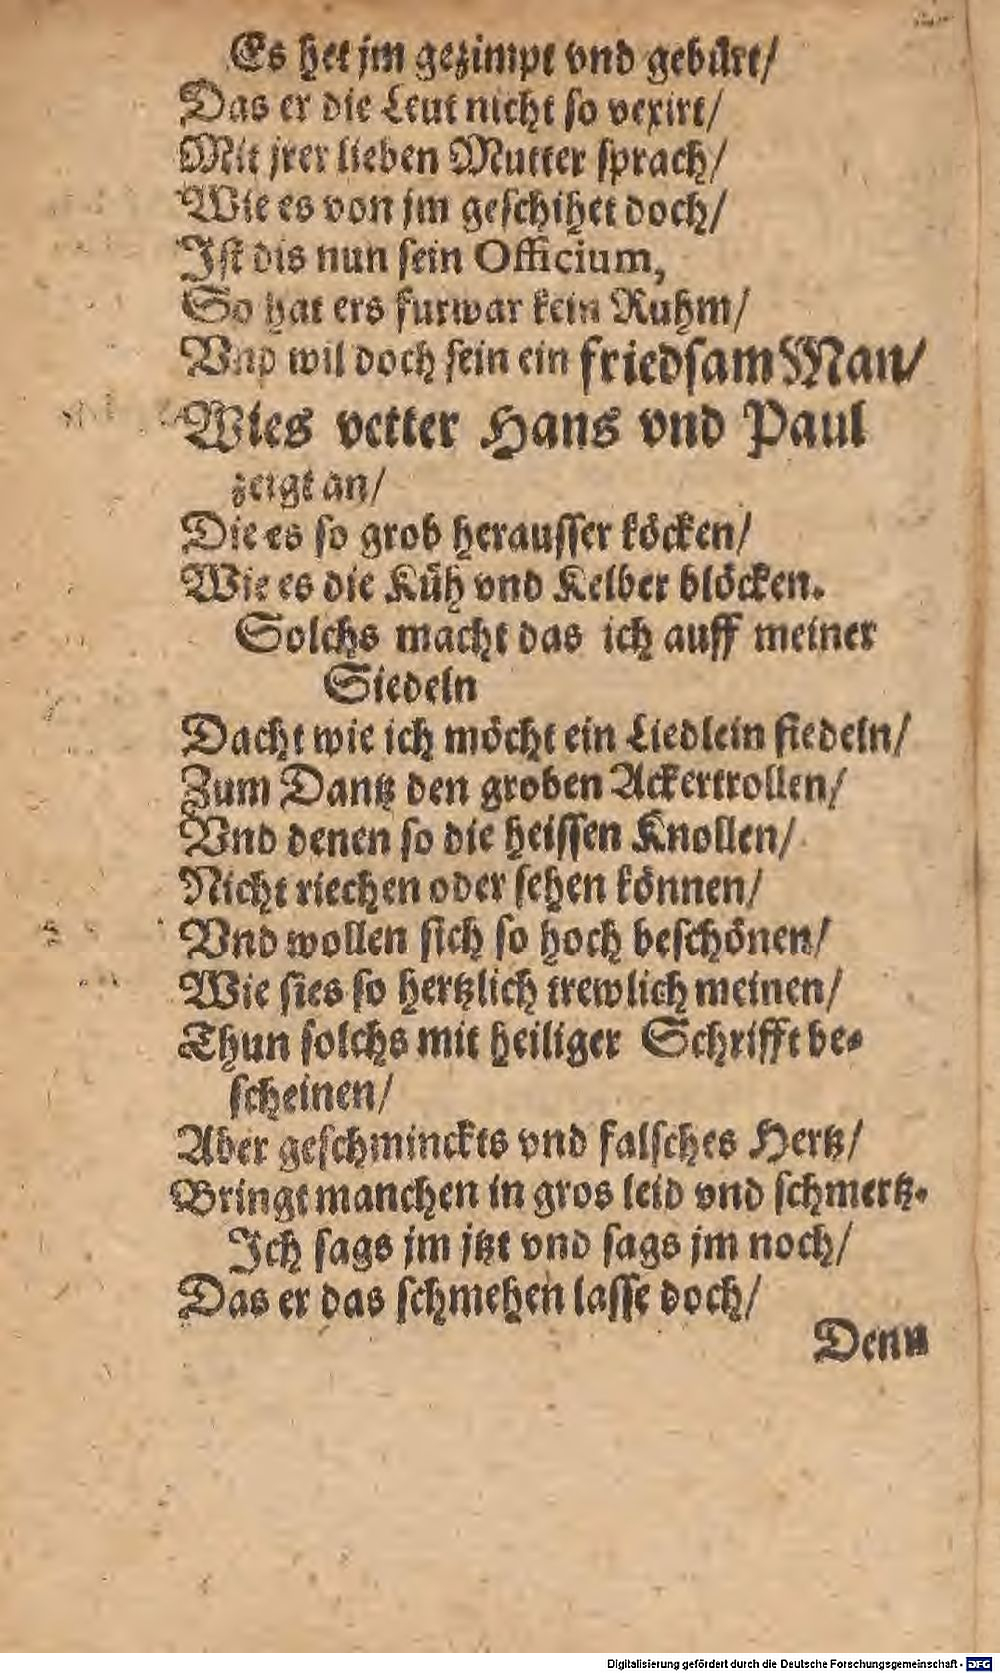 Es het jm gezimpt vnd gebürt/
Das er die Leut nicht ſo vexirt/
Mit jrer lieben Mutter ſprach/
Wie es von jm geſchihet doch/
Iſt dis nun ſein Officium,
So hat ers furwar kein Ruhm/
Vnd wil doch ſein ein friedſam Man/
Wies vetter Hans vnd Paul
zeigt an/
Die es ſo grob herauſſer köcken/
Wie es die Küh vnd Kelber blöcken.
Solchs macht das ich auff meiner
Siedeln
Dacht wie ich möcht ein Liedlein fiedeln/
Zum Dantz den groben Ackertrollen/
Vnd denen ſo die heiſſen Knollen/
Nicht riechen oder ſehen können/
Vnd wollen ſich ſo hoch beſchönen/
Wie ſies ſo hertzlich trewlich meinen/
Thun ſolchs mit heiliger Schrifft be⸗
ſcheinen/
Aber geſchminckts vnd falſches Hertz/
Bringt manchen in gros leid vnd ſchmertz.
Ich ſags jm jtzt vnd ſags jm noch/
Das er das ſchmehen laſſe doch/
Denn
Digitalisierung gefördert durch die Deutsche Forschungsgemeinschaft - DFG